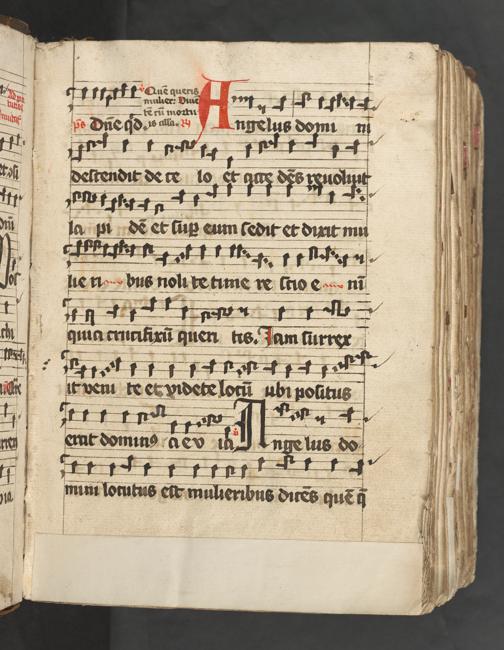 Quē queris
mulier: viuē
tē cū mortu
ps Dn̄e qd. is alla. R
Angelus domi ni
descendit de ce lo et acce dēs reuoluit
la pi dē et sup eum sedit et dixit mu
lie ri bus noli te time re scio e nī
quia crucifixū queri tis. Iam surrex
it veni te et videte locū ubi positus
erat dominꝰ a e v ia Angelus do
mini locutus est mulieribus dicēs quē q̄